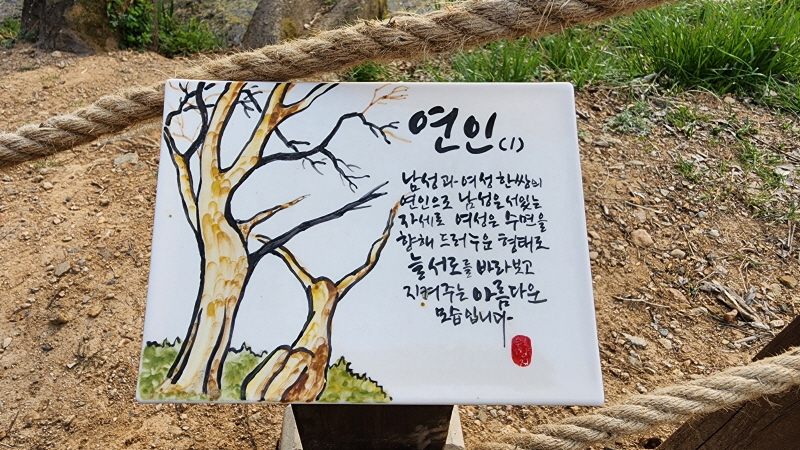 연인(1)
남성과 여성 한쌍의
연인으로 남성은 서있는
자세로 여성은 수면을
향해 드러누운 형태로
늘 서로를 바라보고
지켜주는 아름다운
모습입니다.